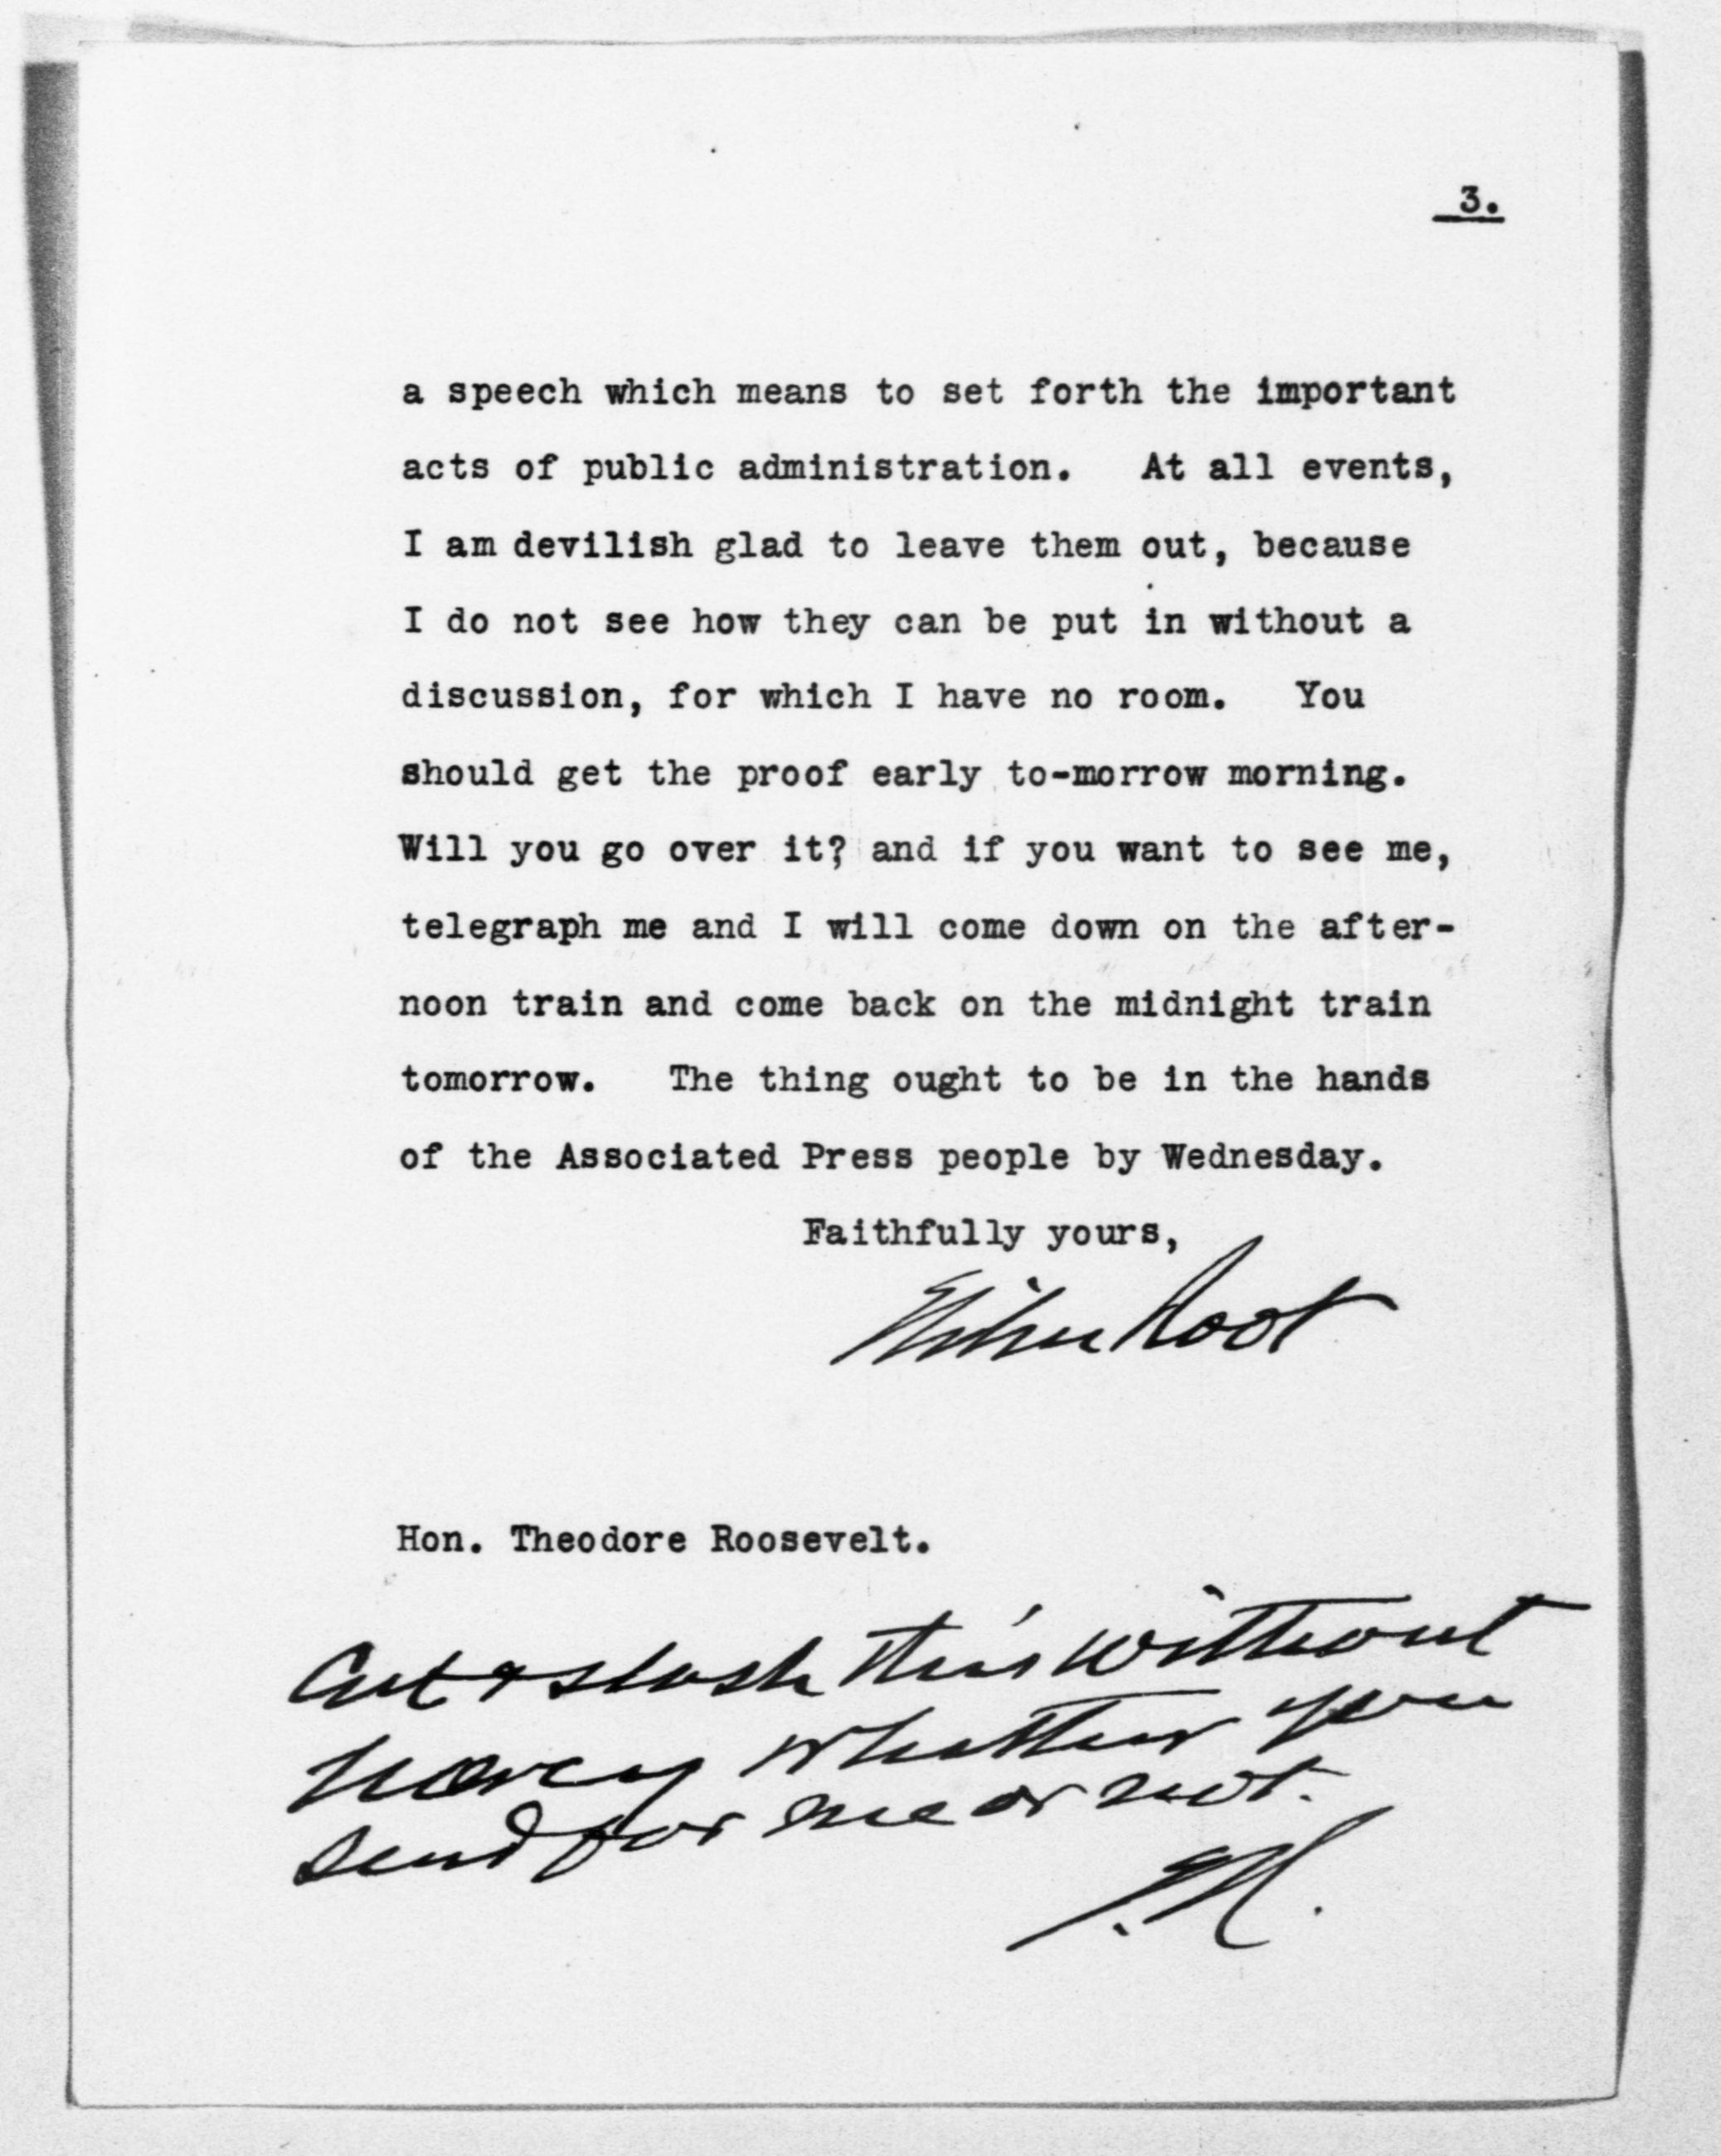 3.
a speech which means to set forth the important
acts of public administration. At all events,
I am devilish glad to leave them out, because
I do not see how they can be put in without a
discussion, for which I have no room. You
should get the proof early to-morrow morning.
Will you go over it? and if you want to see me,
telegraph me and I will come down on the after-
noon train and come back on the midnight train
tomorrow. The thing ought to be in the hands
of the Associated Press people by Wednesday.
Faithfully yours,
Elihu Root
Hon. Theodore Roosevelt.
Cut & slash this without
mercy whether you
send for me or not.
E.R.